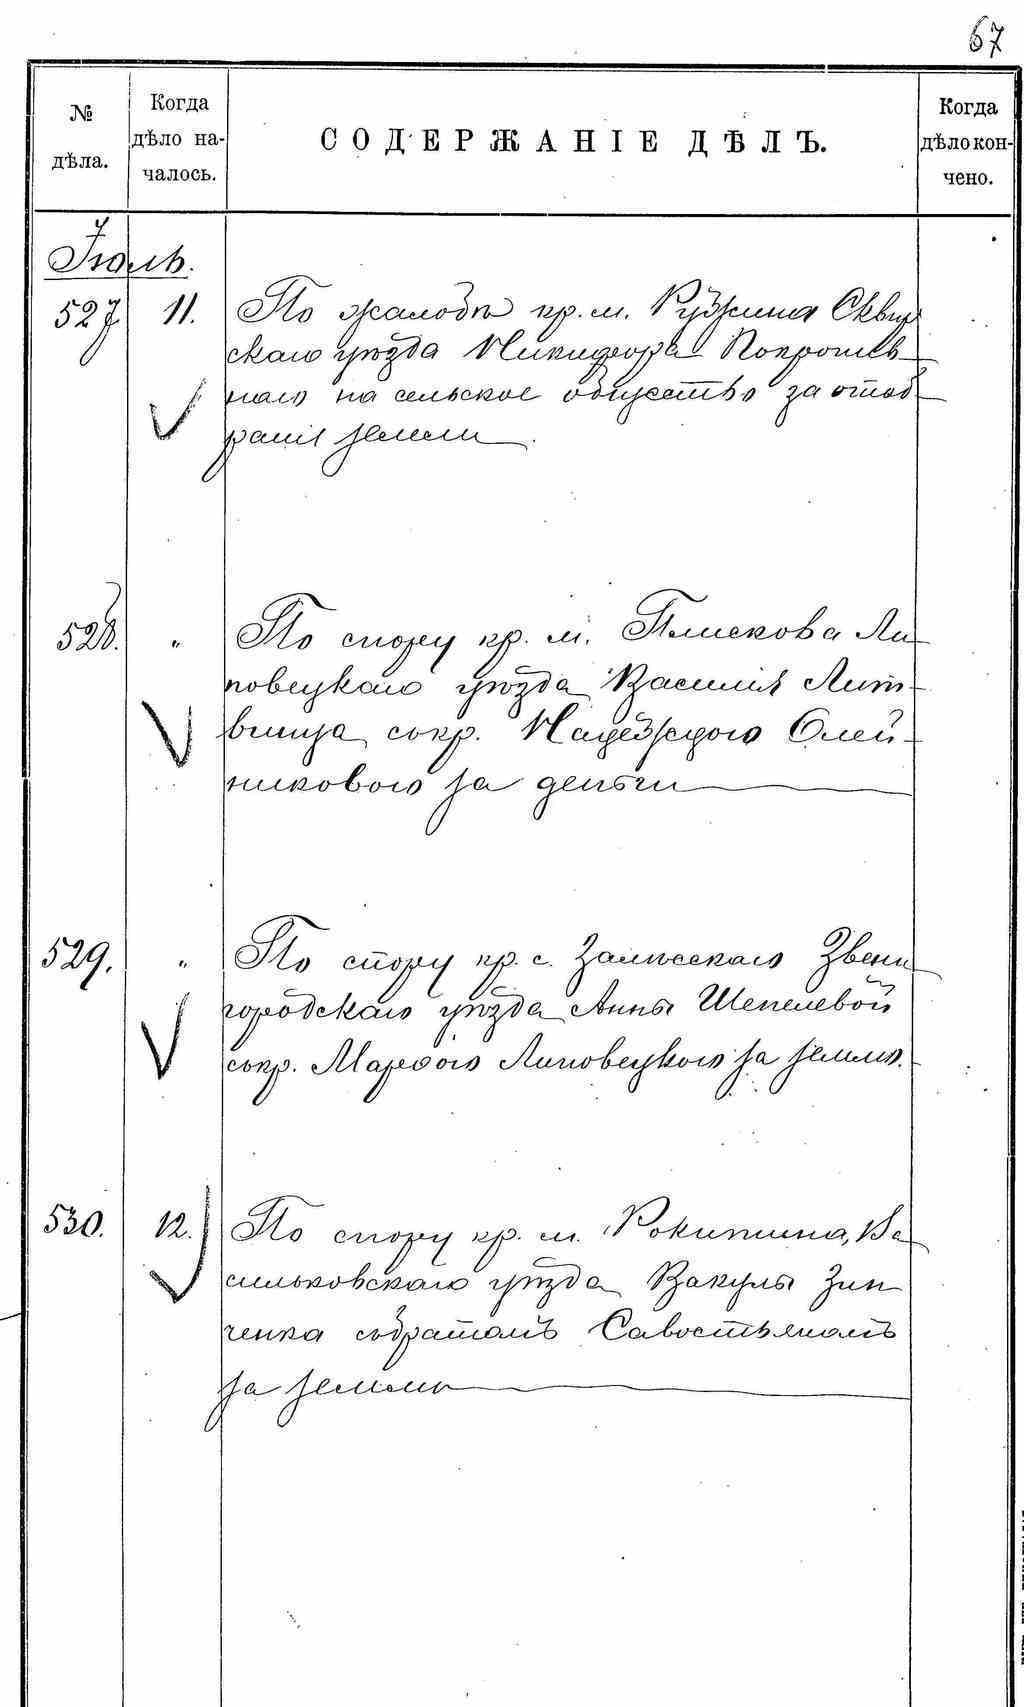 67
№ дѣла.
Когда дѣло на-чалось.
СОДЕРЖАНІЕ ДѢЛЪ.
Когда дѣло кон-чено.
Іюль.
527. 11. По жалобѣ кр. м. Ружина Сквир
скаго уѣзда Никифора
наго на сельское общество за отоб
раніе земли
528. „ По спору кр. м. Плискова Ли
повецкаго уѣзда Василія Лит
винца съ кр. Надеждою Олей
никовою за деньги
529. „ По спору кр. с. Залѣсскаго Звени
городскаго уѣзда Анны Шепелевой
съ кр. Марѳою Липовецкою за землю.
530. 12. По спору кр. м. Рокитина, Ва
сильковскаго уѣзда Вакулы Зин
ченка съ братомъ Савостьяномъ
за землю